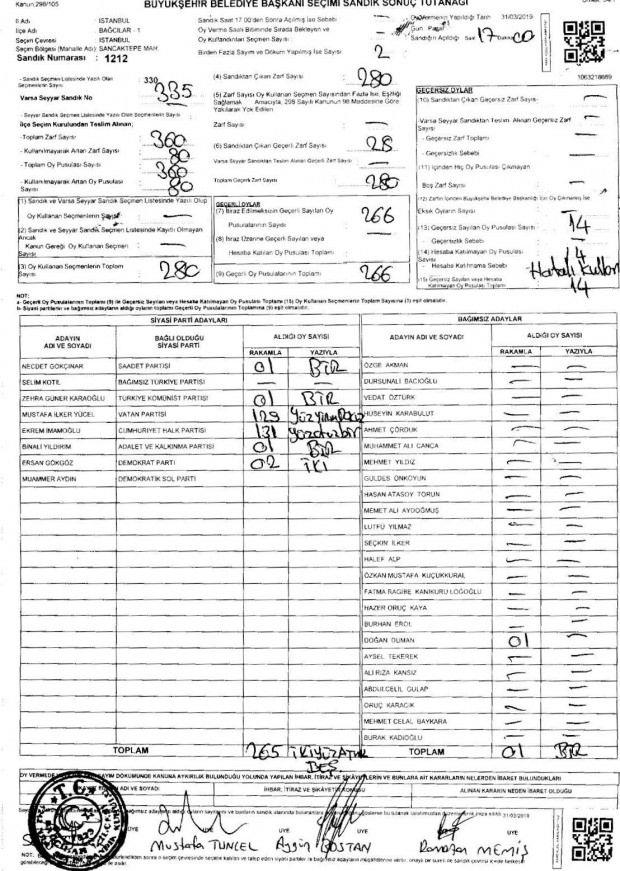 Kanun:298/105
BÜYÜKŞEHİR BELEDİYE BAŞKANI SEÇİMİ SANDIK SONUÇ TUTANAĞI
İl Adı : İSTANBUL
İlçe Adı : BAĞCILAR - 1
Seçim Çevresi : İSTANBUL
Seçim Bölgesi (Mahalle Adı): SANCAKTEPE MAH.
Sandık Numarası : 1212
Sandık Saat 17.00'den Sonra Açılmış İse Sebebi
Oy Verme Saati Bitiminde Sırada Bekleyen ve
Oy Kullandırılan Seçmen Sayısı
Birden Fazla Sayım ve Döküm Yapılmış İse Sayısı 2
Oy Vermenin Yapıldığı Tarih 31/03/2019
Gün Pazar
Sandığın Açıldığı Saat 17 Dakika 00
1063218689
- Sandık Seçmen Listesinde Yazılı Olan Seçmenlerin Sayısı 330 335
Varsa Seyyar Sandık No
- Seyyar Sandık Seçmen Listesinde Yazılı Olan Seçmenlerin Sayısı
İlçe Seçim Kurulundan Teslim Alınan;
-Toplam Zarf Sayısı 360
- Kullanılmayarak Artan Zarf Sayısı 80
- Toplam Oy Pusulası Sayısı 360
- Kullanılmayarak Artan Oy Pusulası Sayısı 80
(1) Sandık ve Varsa Seyyar Sandık Seçmen Listesinde Yazılı Olup
Oy Kullanan Seçmenlerin Sayısı
(2) Sandık ve Seyyar Sandık Seçmen Listesinde Kayıtlı Olmayan Ancak
Kanun Gereği Oy Kullanan Seçmen Sayısı
(3) Oy Kullanan Seçmenlerin Toplam Sayısı 280
(4) Sandıktan Çıkan Zarf Sayısı 280
(5) Zarf Sayısı Oy Kullanan Seçmen Sayısından Fazla İse, Eşitliği
Sağlamak Amacıyla, 298 Sayılı Kanunun 98.Maddesine Göre
Yakılarak Yok Edilen
Zarf Sayısı
(6) Sandıktan Çıkan Geçerli Zarf Sayısı 28
Varsa Seyyar Sandıktan Teslim Alınan Geçerli Zarf Sayısı
Toplam Geçerli Zarf Sayısı 280
GEÇERLİ OYLAR
(7) İtiraz Edilmeksizin Geçerli Sayılan Oy
Pusulalarının Sayısı 266
(8) İtiraz Üzerine Geçerli Sayılan veya
Hesaba Katılan Oy Pusulalarının Sayısı
(9) Geçerli Oy Pusulalarının Toplamı 266
GEÇERSİZ OYLAR
(10) Sandıktan Çıkan Geçersiz Zarf Sayısı
-Varsa Seyyar Sandıktan Teslim Alınan Geçersiz Zarf Sayısı
- Geçersiz Zarf Toplamı
- Geçersizlik Sebebi
(11) İçinden Hiç Oy Pusulası Çıkmayan
Boş Zarf Sayısı
(12) Zarfın İçinden Büyükşehir Belediye Başkanlığı İçin Oy Çıkmamış İse
Eksik Oyların Sayısı
(13) Geçersiz Sayılan Oy Pusulası Sayısı 14
Geçersizlik Sebebi
(14) Hesaba Katılmayan Oy Pusulası Sayısı
- Hesaba Katılmama Sebebi Hatalı
(15) Geçersiz Sayılan veya Hesaba
Katılmayan Oy Pusulası Toplamı 14
NOT:
a- Geçerli Oy Pusulalarının Toplamı (9) ile Geçersiz Sayılan veya Hesaba Katılmayan Oy Pusulası Toplamı (15) Oy Kullanan Seçmenlerin Toplam Sayısına (3) eşit olmalıdır.
b- Siyasi partilerin ve bağımsız adayların aldığı oyların toplamı Geçerli Oy Pusulalarının Toplamına (9) eşit olmalıdır.
SİYASİ PARTİ ADAYLARI
BAĞIMSIZ ADAYLAR
ADAYIN ADI VE SOYADI
BAĞLI OLDUĞU SİYASİ PARTİ
ALDIĞI OY SAYISI
RAKAMLA YAZIYLA
ADAYIN ADI VE SOYADI
ALDIĞI OY SAYISI
RAKAMLA YAZIYLA
NECDET GÖKÇINAR SAADET PARTİSİ 01 BİR
SELİM KOTİL BAĞIMSIZ TÜRKİYE PARTİSİ — —
ZEHRA GÜNER KARAOĞLU TÜRKİYE KOMÜNİST PARTİSİ 01 BİR
MUSTAFA İLKER YÜCEL VATAN PARTİSİ 129
EKREM İMAMOĞLU CUMHURİYET HALK PARTİSİ 131 yüzotuzbir
BİNALİ YILDIRIM ADALET VE KALKINMA PARTİSİ 01 BİR
ERSAN GÖKGÖZ DEMOKRAT PARTİ 02 İKİ
MUAMMER AYDIN DEMOKRATİK SOL PARTİ
ÖZGE AKMAN — —
DURSUNALİ BACIOĞLU — —
VEDAT ÖZTÜRK — —
HÜSEYİN KARABULUT — —
AHMET ÇÖRDÜK — —
MUHAMMET ALİ CANCA — —
MEHMET YILDIZ — —
GÜLDES ÖNKOYUN — —
HASAN ATASOY TORUN — —
MEMET ALİ AYDOĞMUŞ — —
LÜTFÜ YILMAZ — —
SEÇKİN İLKER — —
HALEF ALP — —
ÖZKAN MUSTAFA KÜÇÜKKURAL — —
FATMA RAGİBE KANIKURU LOĞOĞLU — —
HAZER ORUÇ KAYA — —
BURHAN EROL — —
DOĞAN DUMAN 01 —
AYSEL TEKEREK — —
ALİ RIZA KANSIZ — —
ABDULCELİL GÜLAP — —
ORUÇ KARACIK — —
MEHMET CELAL BAYKARA — —
BURAK KADIOĞLU — —
TOPLAM 265 İKİYÜZATMIŞ BEŞ
TOPLAM 01 BİR
ADI VE SOYADI
İHBAR, İTİRAZ VE ŞİKAYETİN KONUSU
ALINAN KARARIN NEDEN İBARET OLDUĞU
31/03/2019
ÜYE ÜYE ÜYE ÜYE
Mustafa TUNCEL
BOSTAN
Ramazan MEMİŞ